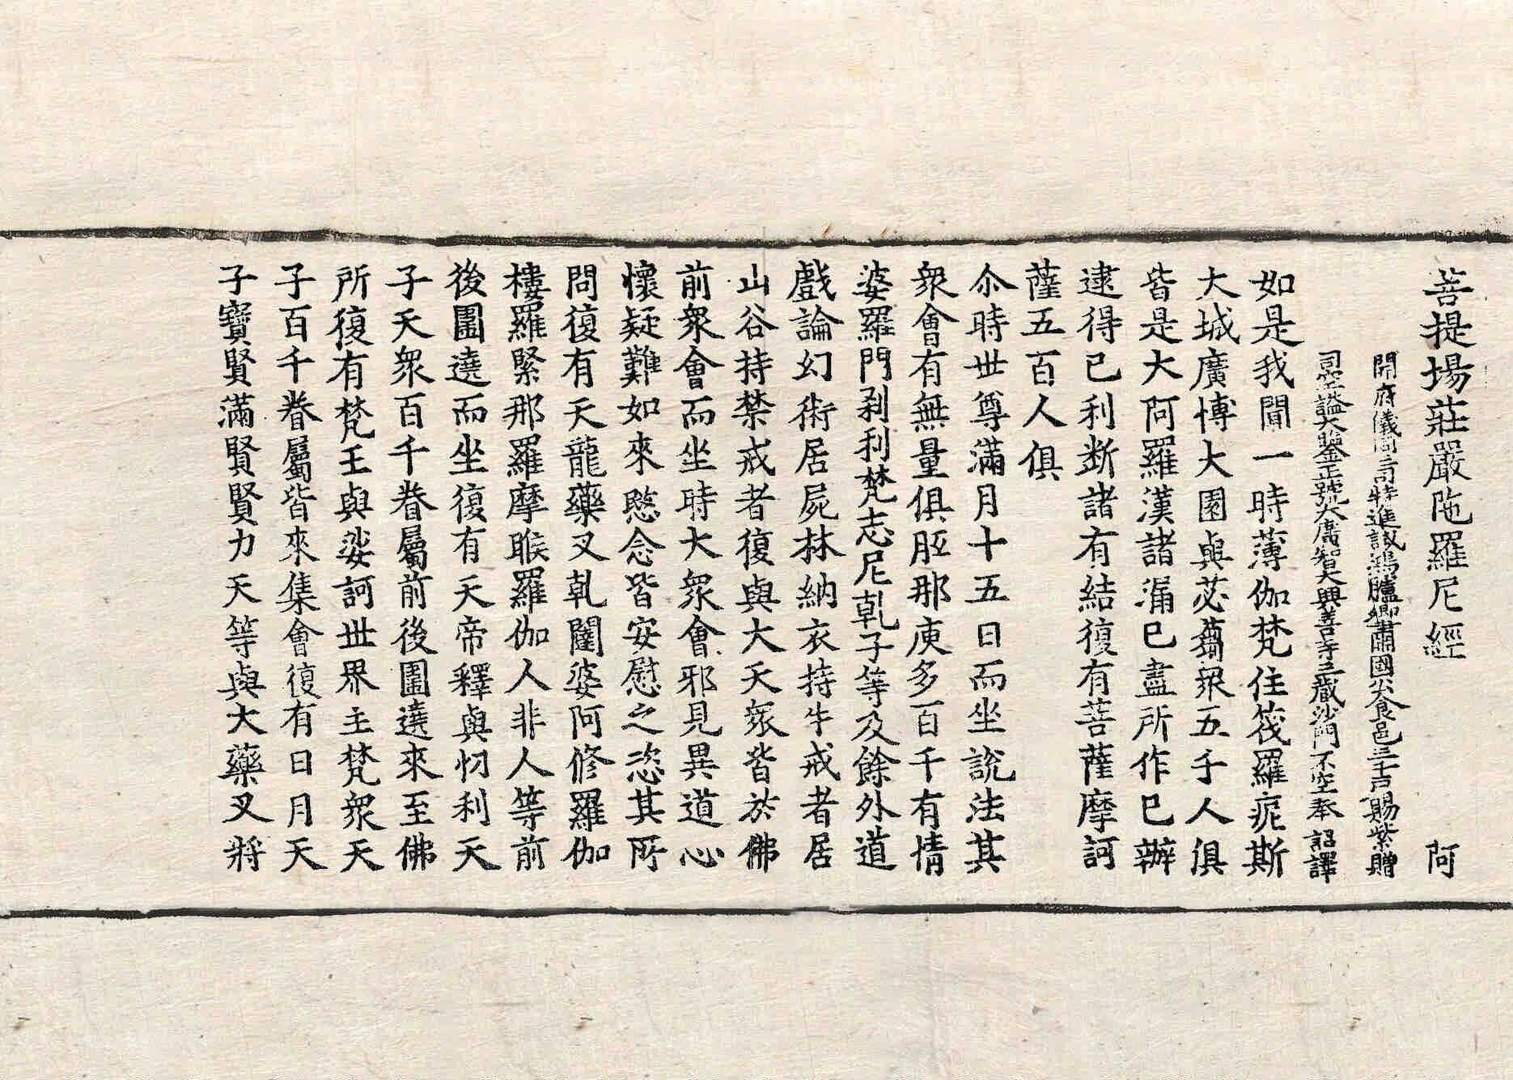 菩提場莊嚴陁羅尼經 阿
開府儀同三司特進試鴻臚卿肅國公食邑三千戶賜紫贈
司空謚大鑒正號大廣智大興善寺三藏沙門不空奉 詔譯
如是我聞一時薄伽梵住筏羅痆斯
大城廣博大園與苾蒭衆五千人俱
皆是大阿羅漢諸漏已盡所作已辦
逮得已利断諸有結復有菩薩摩訶
薩五百人俱
尒時世尊滿月十五日而坐說法其
衆會有無量俱胝那庾多百千有情
婆羅門剎利梵志尼乹子等及餘外道
戲論幻術居屍林納衣持牛戒者居
山谷持禁戒者復與大天衆皆於佛
前衆會而坐時大衆會邪見異道心
懷疑難如來愍念皆安慰之恣其所
問復有天龍藥叉乹闥婆阿修羅伽
樓羅緊那羅摩睺羅伽人非人等前
後圍遶而坐復有天帝釋與忉利天
子天衆百千眷屬前後圍遶來至佛
所復有梵王與娑訶世界主梵衆天
子百千眷屬皆來集會復有日月天
子寶賢滿賢賢力天等與大藥叉將